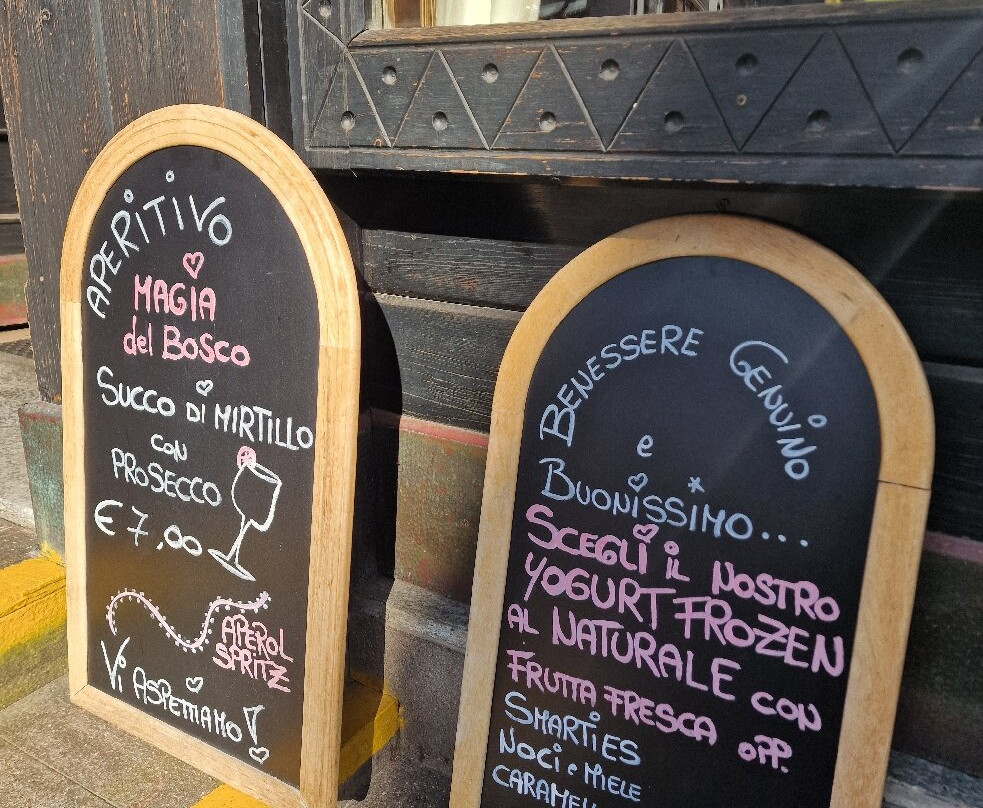 APERITIVO
MAGIA
del BOSCO
SUCCO DI MIRTILLO
CON
PROSECCO
€ 7,00
APEROL
SPRITZ
Vi ASPETTIAMO!
BENESSERE GENUINO
e
BUONISSIMO...
SCEGLI iL NOSTRO
YOGURT FROZEN
AL NATURALE CON
FRUTTA FRESCA OPP.
SMARTIES
NOCI e MIELE